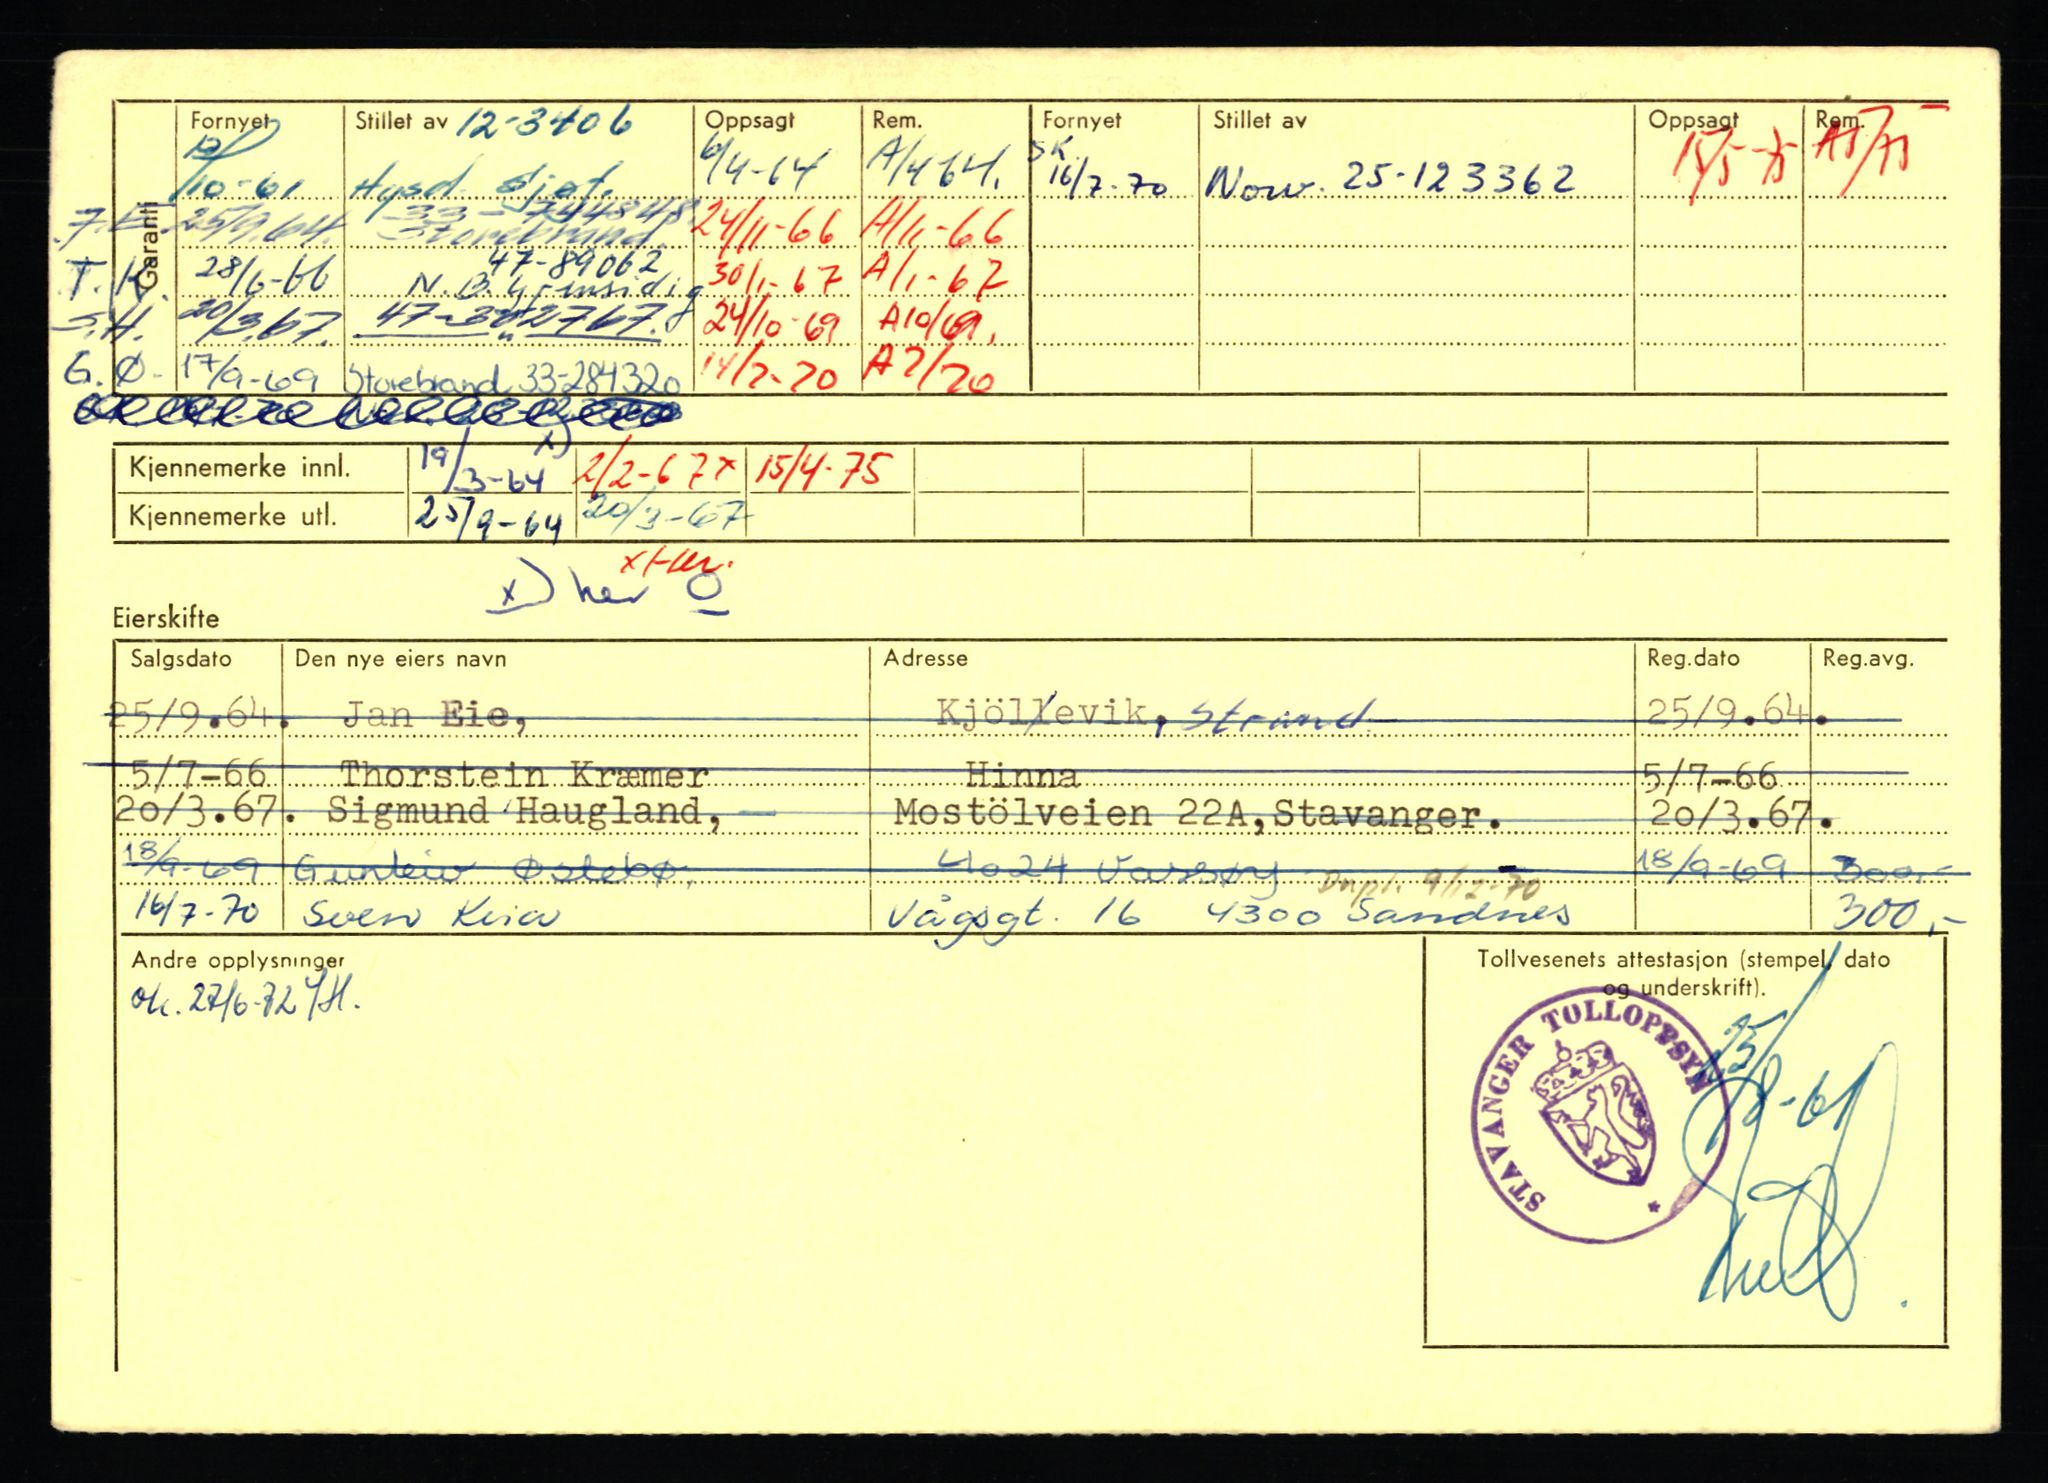 Garanti
Fornyet Stillet av 12-3406 Oppsagt Rem. Fornyet Stillet av Oppsagt Rem.
/10-61 6/4-64 A/4 64. SK 16/7-70 Norv. 25-123362 15/5-75 A5/75
25/9.64. 33-744848 Storebrand. 24/11-66 A/11-66
T.K. 28/6-66 47-89062 N.B. Gjensidig 30/1-67 A/1-67
S.H. 20/3.67. 47-302767. 24/10-69 A10/69.
G.Ø- 17/9-69 Storebrand 33-284320 14/7-70 A7/70
Kjennemerke innl. 19/3-64 x) 2/2-67 x 15/4-75
Kjennemerke utl. 25/9-64 20/3-67
x) her
Eierskifte
Salgsdato Den nye eiers navn Adresse Reg.dato Reg.avg.
25/9.64. Jan Eie, Kjöllevik, Strand 25/9.64.
5/7-66 Thorstein Kræmer Hinna 5/7-66
20/3.67. Sigmund Haugland, Mostölveien 22A, Stavanger. 20/3.67.
18/9-69 Gunleiv Østebø. 4024 18/9-69 300,-
Dupl. 9/12-70
16/7-70 Sven Kvia Vågsgt. 16 4300 Sandnes 300,-
Andre opplysninger
ok. 27/6-72
Tollvesenets attestasjon (stempel, dato
og underskrift).
STAVANGER TOLLOPPSYN
25/8-61